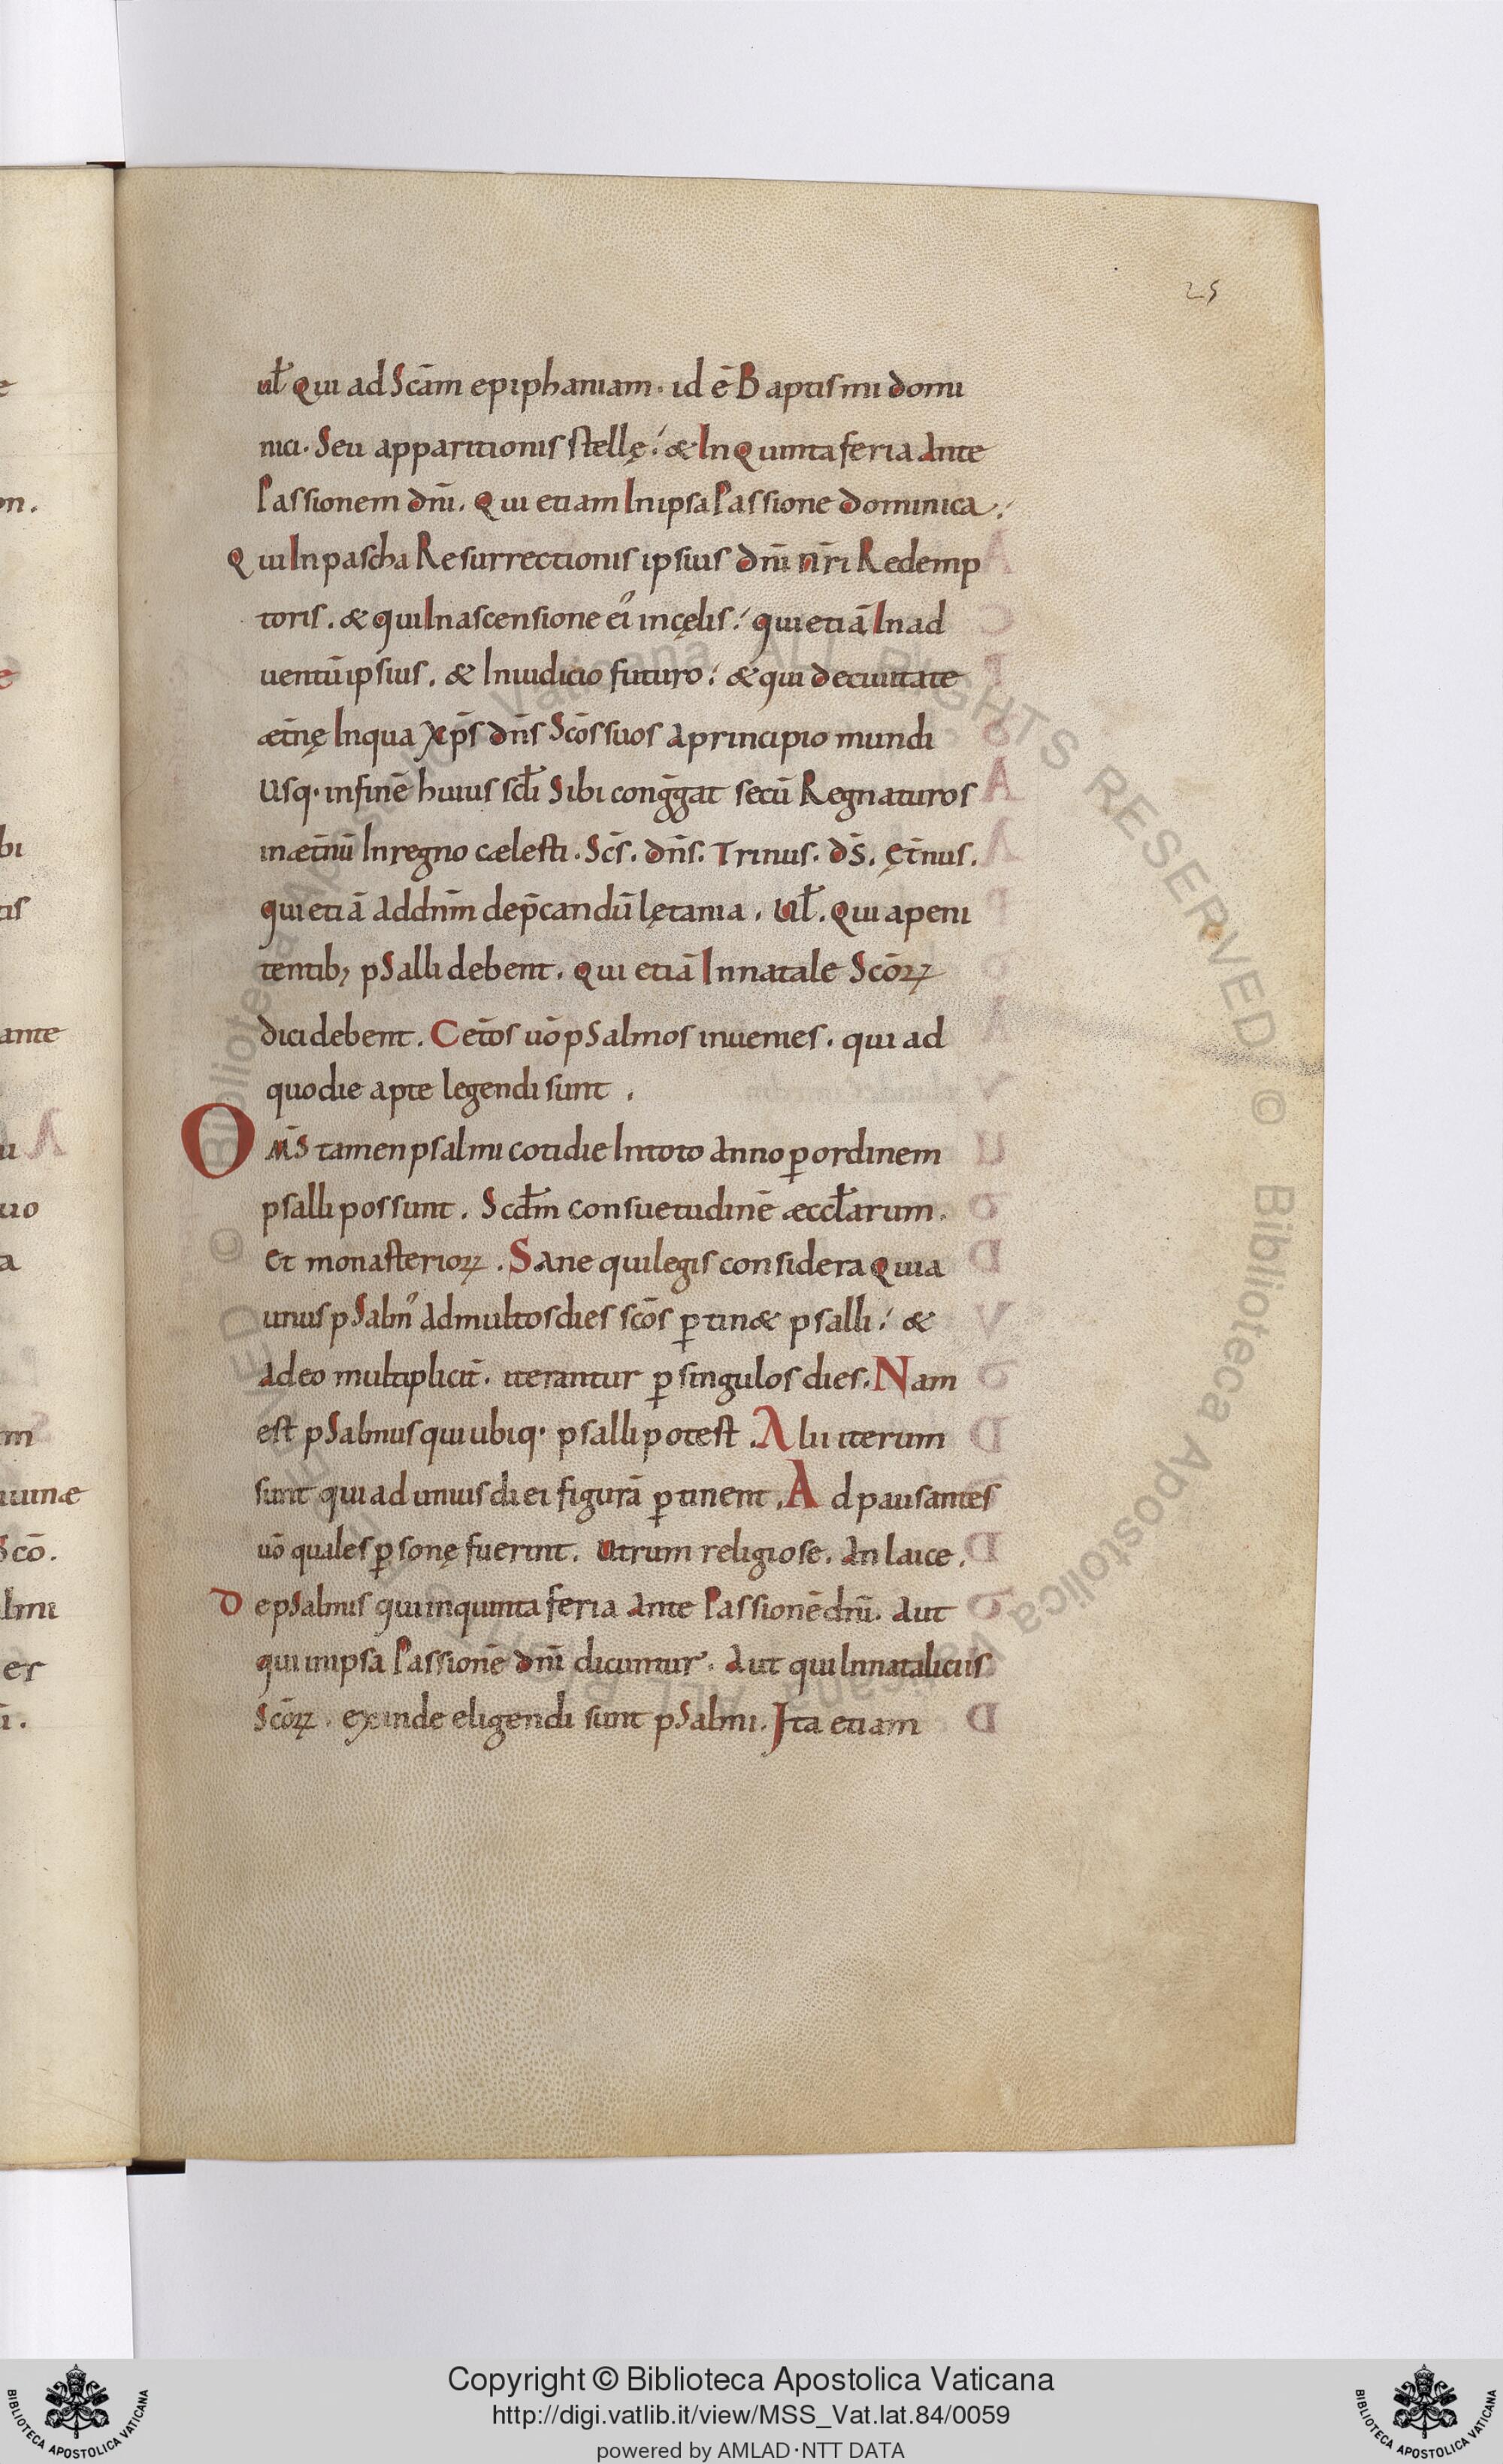 25
ul̄ Qui ad Scām epiphaniam. id ē Baptismi domi
nici. Seu apparitionis stellę. & In Quinta feria Ante
Passionem dn̄i. Qui etiam In ipsa Passione dominica.
Qui In pascha Resurrectionis ipsius dn̄i nr̄i Redemp
toris. & qui In ascensione ei᾿ in cęlis. qui etiā In ad
uentū ipsius. & In iudicio futuro. & qui de ciuitate
æt̄nę In qua xp̄s dn̄s Scōs suos A principio mundi
usq. in finē huius scl̄i Sibi cong̅gat secū Regnaturos
in æt̄nū In regno cælesti. Sc̄s. dn̄s. Trinus. d̄s. ęt̄nus.
qui etiā Ad dnm̄ dep̄candū lętania. Ul̄. Qui a peni
tentib; pSalli debent. Qui etiā In natale Scōꝝ
dici debent. Cet̄os uō pSalmos inuenies. qui ad
quo die apte legendi sunt.
Om̄s tamen psalmi cotidie In toto Anno ꝑ ordinem
psalli possunt. Scdm̄ consuetudinē æccl̄arum.
Et monasterioꝝ. Sane qui legis considera Quia
unus pSalm᾿ Ad multos dies scōs ꝑtin& psalli. &
Adeo multiplicit̄. iterantur ꝑ singulos dies. Nam
est pSalmus qui ubiq. psalli potest. Alii iterum
sunt qui ad unius diei figurā ꝑtinent. Ad pausantes
uō quales ꝑsonę fuerint. Utrum religiose. An laice.
De pSalmis qui in quinta feria Ante Passionē dn̄i. Aut
qui in ipsa Passionē dn̄i dicuntur. Aut qui In nataliciis
Scōꝝ. exinde eligendi sunt pSalmi. Ita etiam
Copyright © Biblioteca Apostolica Vaticana
http://digi.vatlib.it/view/MSS_Vat.lat.84/0059
powered by AMLAD·NTT DATA